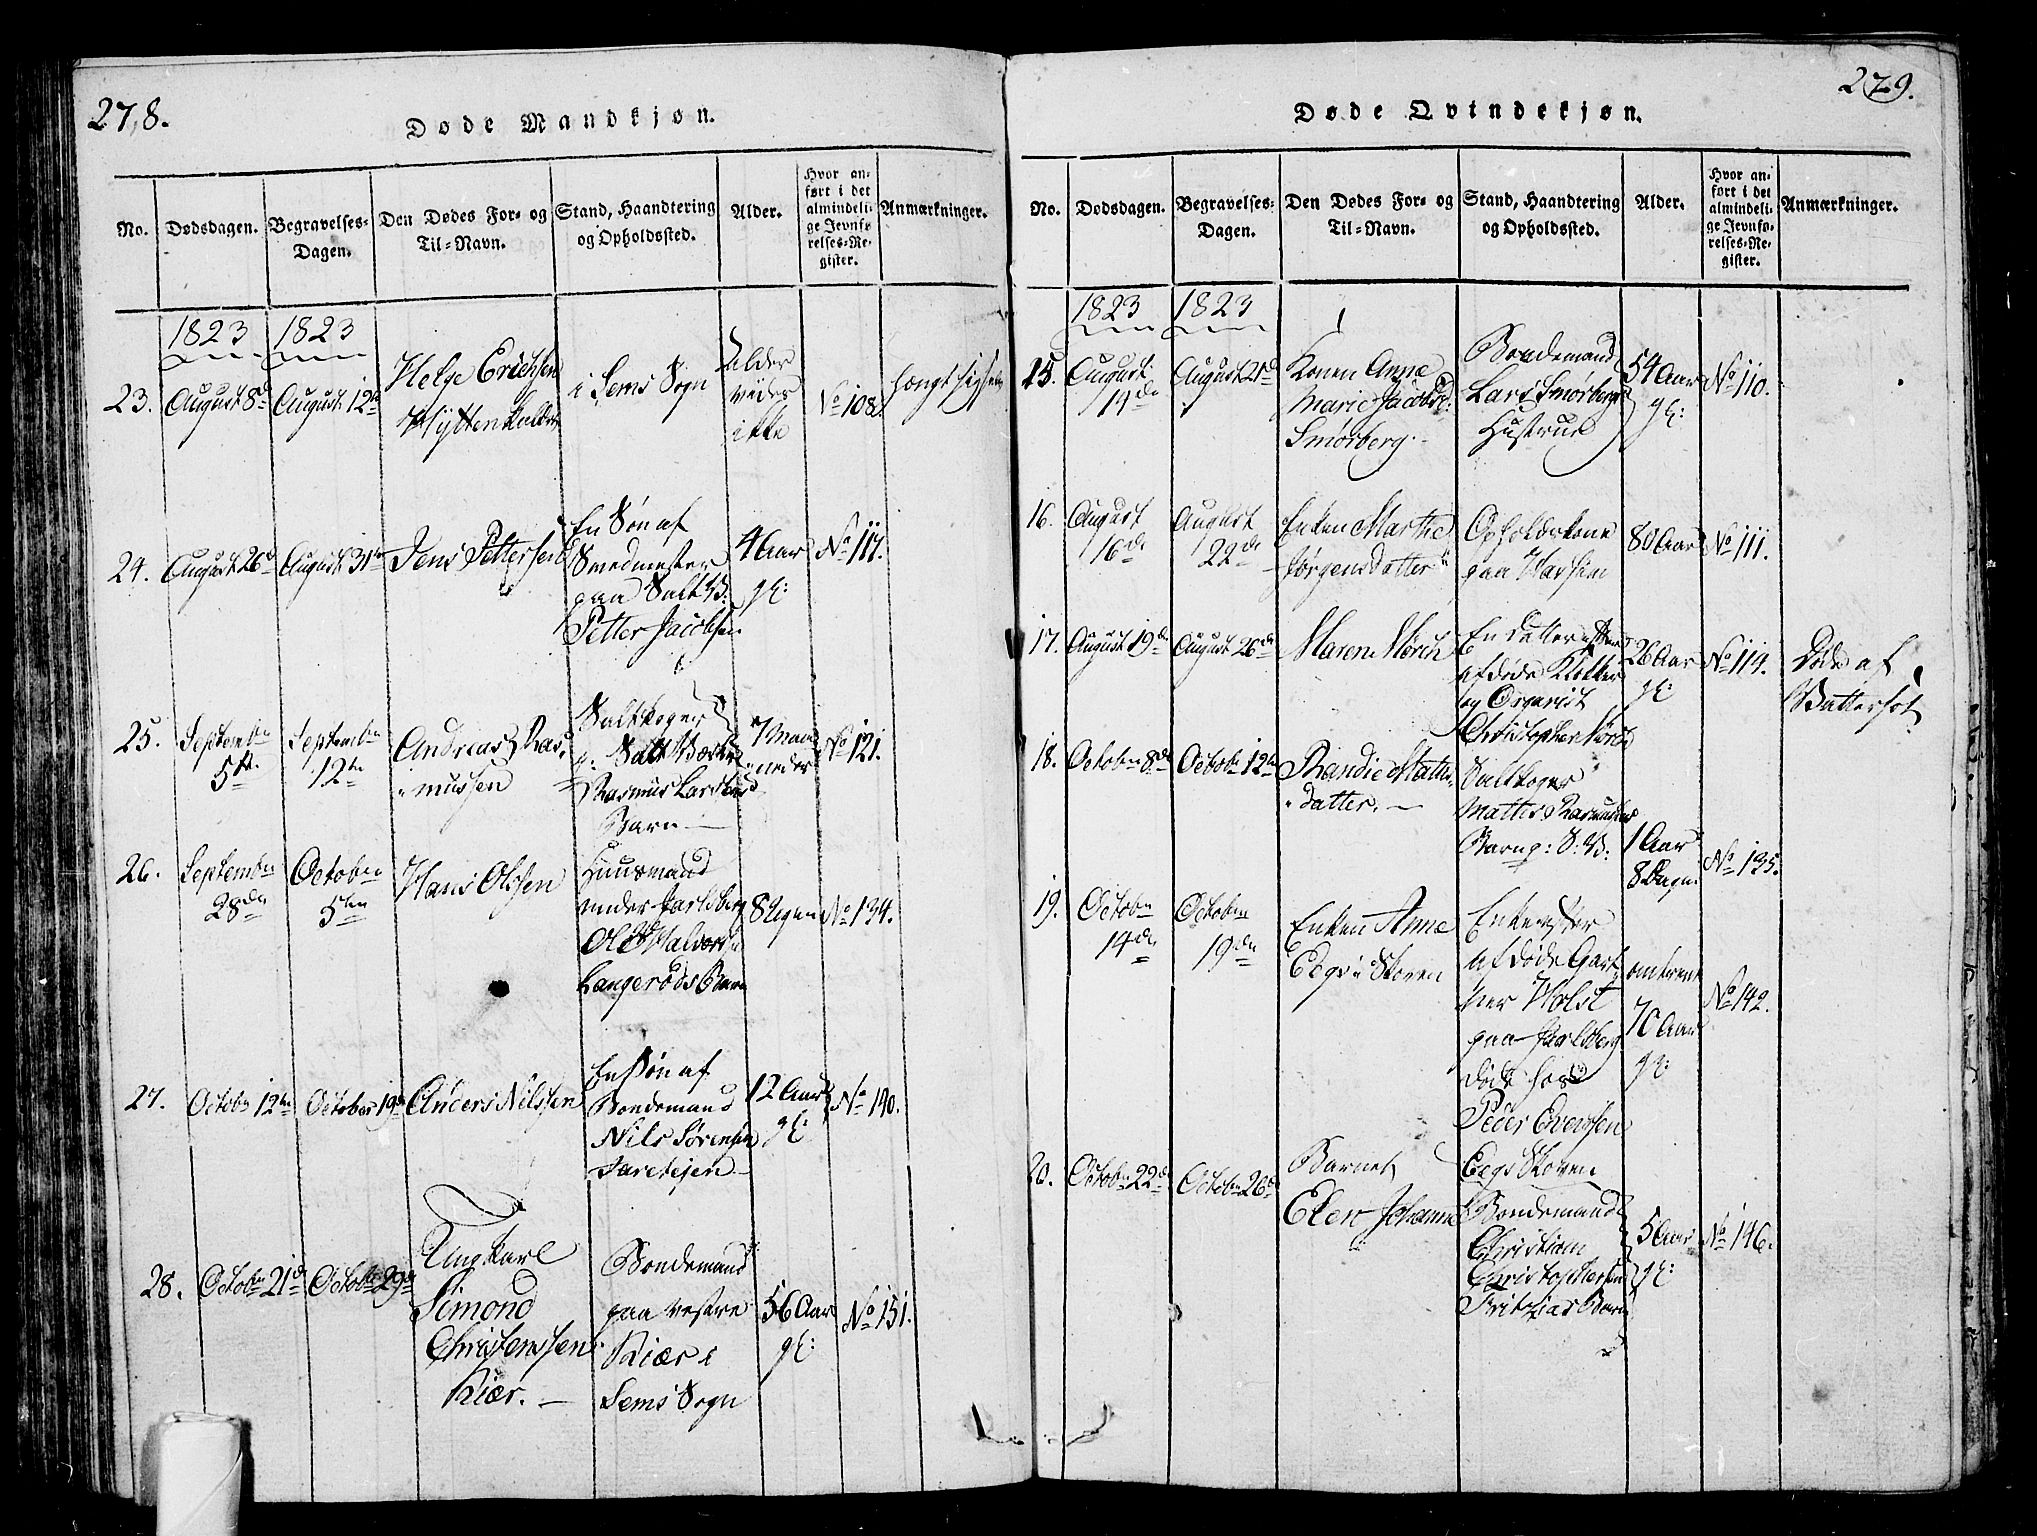 278.
Døde Mandkjøn.
No.
Dødsdagen.
Begravelses-
Dagen.
Den Dødes For- og
Til-Navn.
Stand, Haandtering
og Opholdssted.
Alder.
Hvor an-
ført i det
almindeli-
ge Jevnfø-
relses-Re-
gister.
Anmærkninger.
1823
1823
23.
August 8d
August 12te
Helge Erichsen
i Sems Sogn
Alder
vides
ikke
No 108
24.
August 26d
August 31te
Jens Pettersen
En Søn af
Smedmester
paa Salt V:
Petter Jacobsen
4 Aar
gl:
No 117.
25.
Septembr
5te
Septembr
12te
Andreas Ras-
mussen
Saltkoger
p: Salt Værket
Rasmus Larsens
Barn
7 Maa-
neder
No 121.
26.
September
28de
October
5ten
Hans Olssen
Huusmand
under Jarlsberg
Ole Halvorsen
Langerøds Barn
8 Ugen
No 134.
27.
Octobr 12te
October 19d
Anders Nilssen
En Søn af
Bondemand
Nils Sørensen
12 Aar
gl:
No 140.
28.
Octobr 21d
Octobr 29d
Ungkarl
Simond
Christenssen
Kiær.
Bondemand
paa vestre
Kiær i
Sems Sogn
56 Aar
gl:
No 151.
279.
Døde Qvindekjøn.
No.
Dødsdagen.
Begravelses-
Dagen.
Den Dødes For- og
Til-Navn.
Stand, Haandtering
og Opholdssted.
Alder.
Hvor an-
ført i det
almindeli-
ge Jevnfø-
relses-Re-
gister.
Anmærkninger.
1823
1823
15.
August
14de
August 21d
Konen Anne
Marie Jacobsd:
Smørberg.
Bondemand
Lars Smørbergs
Hustrue
54 Aar
gl:
No 110.
16.
August
16de
August
22de
Enken Marthe
Jørgensdatter
Opholdskone
paa
80 Aar
No 111.
17.
August 19de
August 26de
Maren Mørch
En datter efter
afdøde Klokker
og Organist
Christopher Mørch
26 Aar
gl:
No 114.
Døde af
Vattersot
18.
Octobr 8de
Octobr 12te
Randie Mathis-
datter.
Saltkoger
Mathis Rasmussens
Barn p: S: V:
1 Aar
8 Dage
No 135.
19.
Octobr
14de
Octobr
19de
Enken Anne
Eegs i Skoven
Enke efter
afdøde Gart-
ner Holst
paa Jarlsberg
døde hos
Peder Evenssen
Eegs Skoven
omtrent
70 Aar
gl:
No 142.
20.
Octobr 22d
Octobr 26d
Barnet
Elen Johanne
Bondemand
Christian
Christophersen
Barn
5 Aar
gl:
No 146.